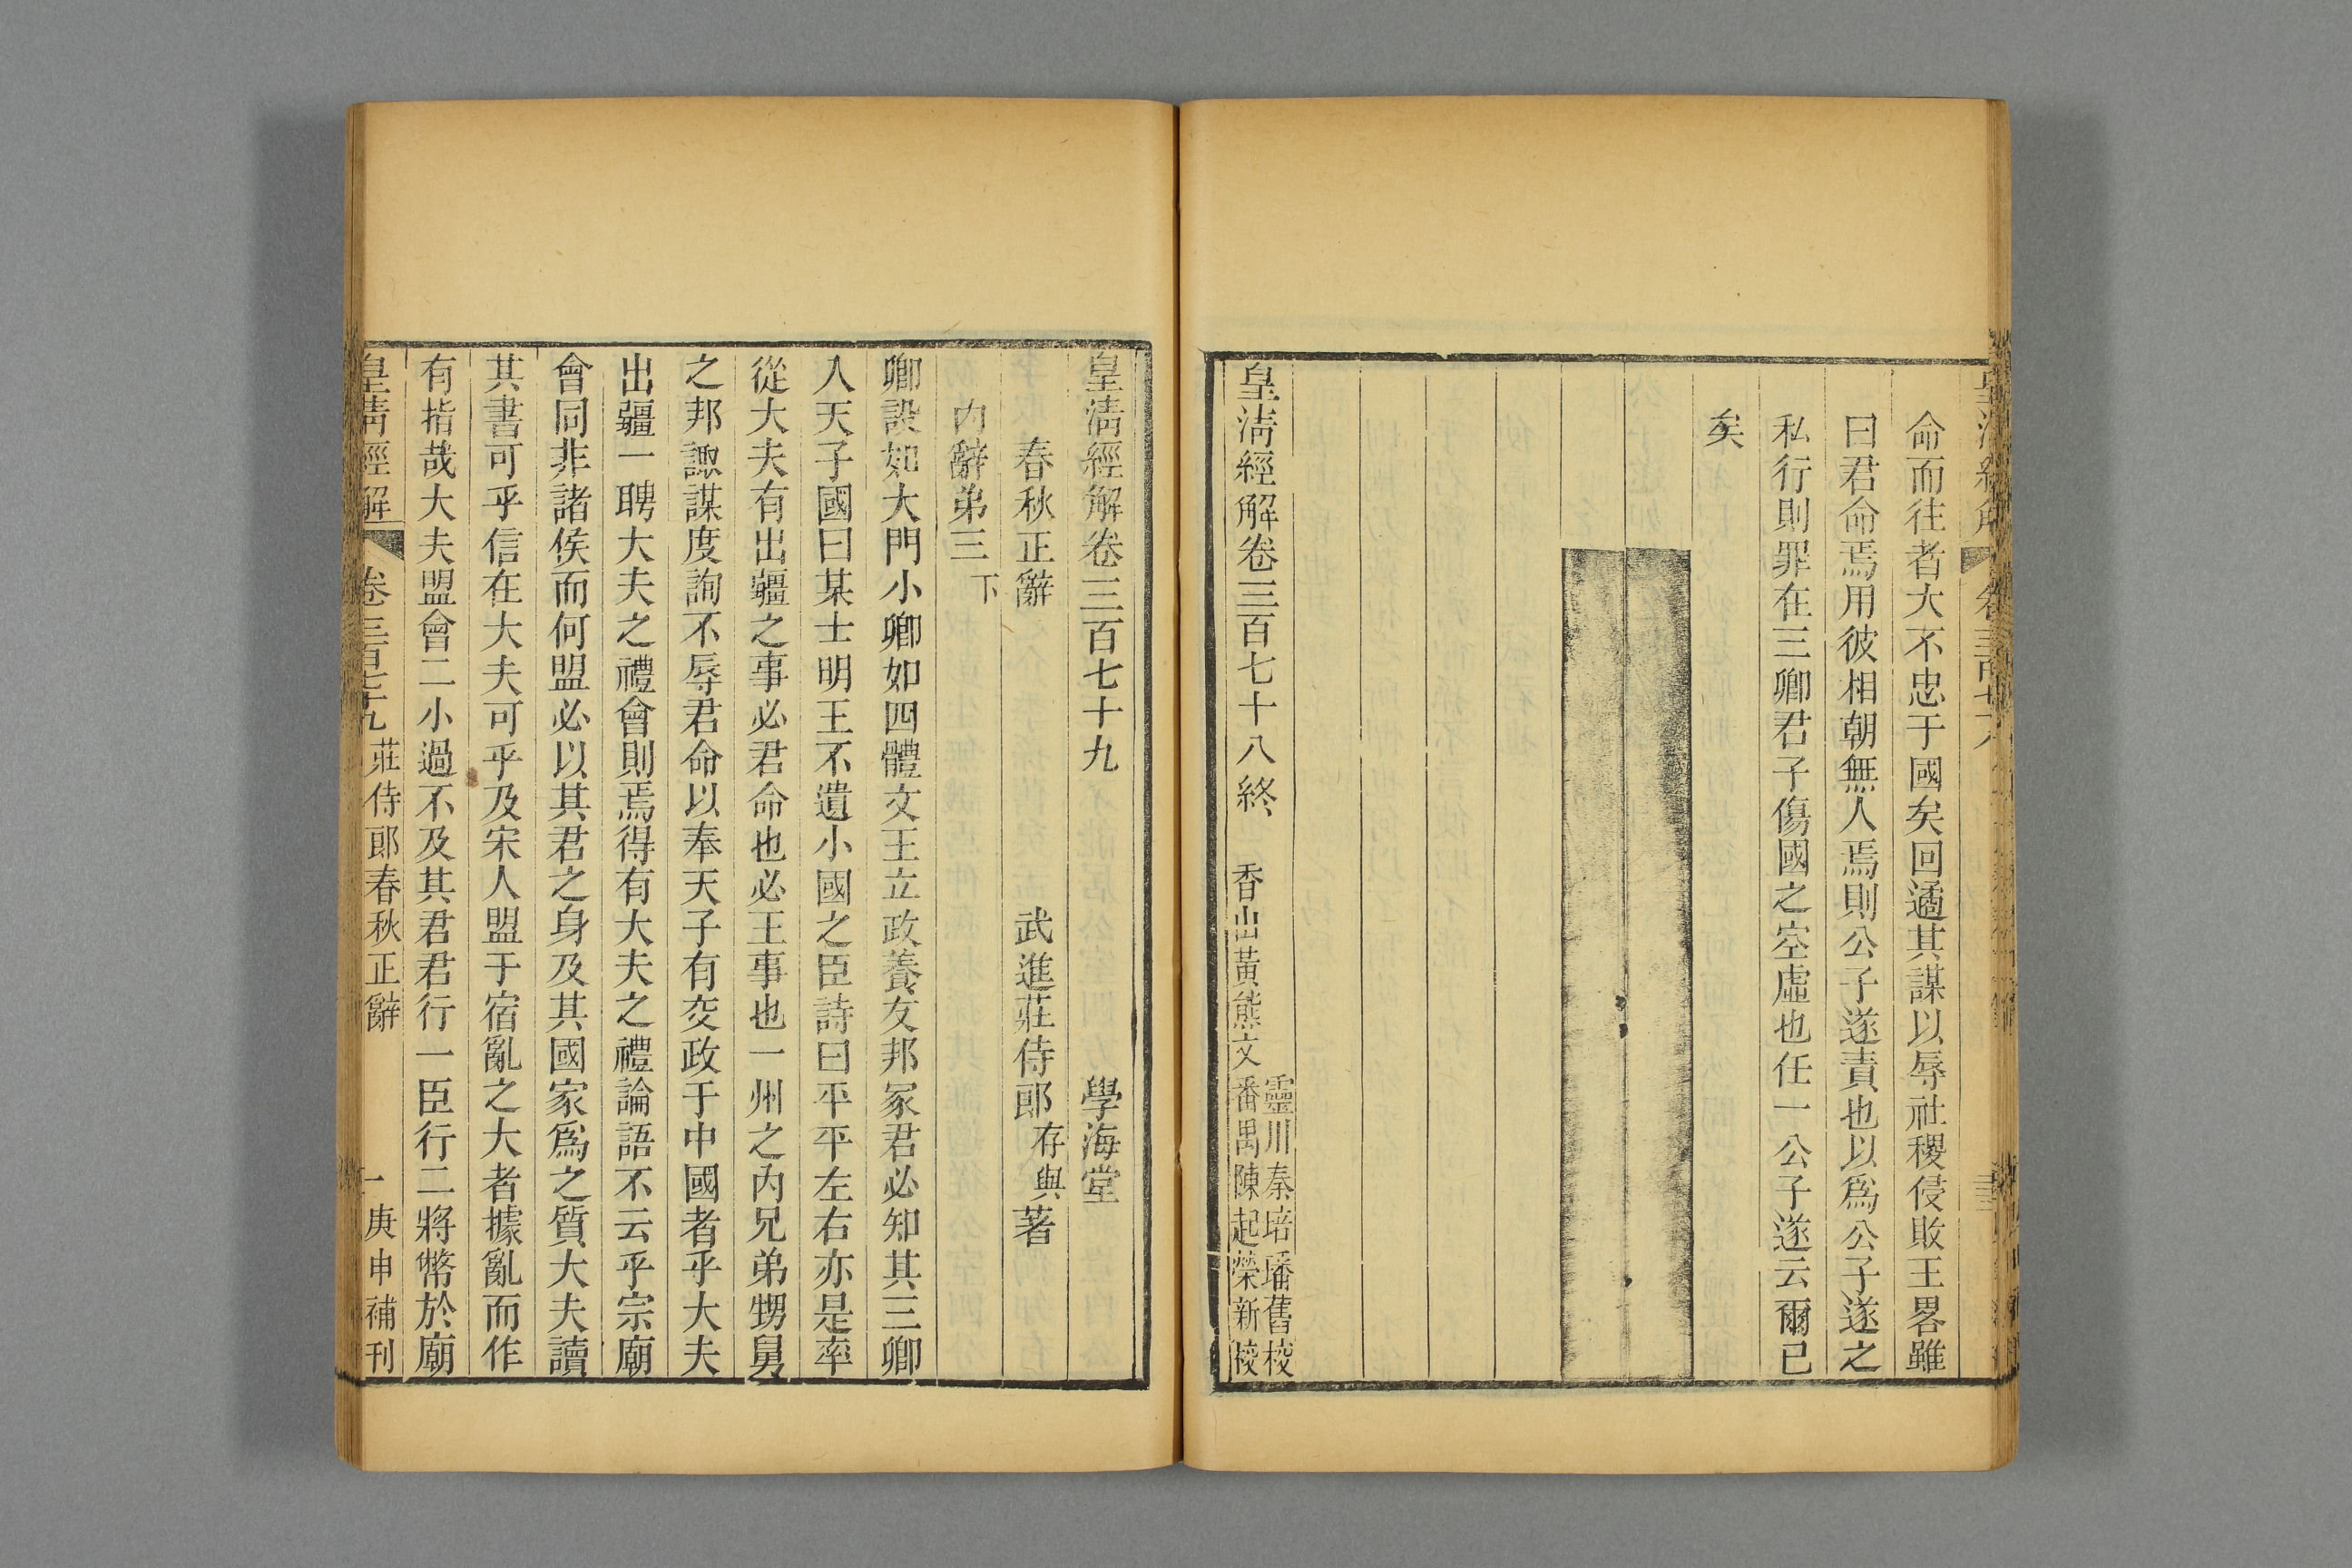 命而往者大不忠于國矣回遹其謀以辱社稷侵敗王畧雖
曰君命焉用彼相朝無人焉則公子遂責也以爲公子遂之
私行則罪在三卿君子傷國之空虛也任一公子遂云爾已
矣
皇清經解卷三百七十八終
香山黃熊文
靈川秦培璠舊校
番禺陳起榮新校
皇清經解卷三百七十九 學海堂
春秋正辭 武進莊侍郎存與著
内辭弟三下
卿設如大門小卿如四體文王立政養友邦冢君必知其三卿
人天子國曰某士明王不遺小國之臣詩曰平平左右亦是率
從大夫有出疆之事必君命也必王事也一州之內兄弟甥舅
之邦諏謀度詢不辱君命以奉天子有交政于中國者乎大夫
出疆一聘大夫之禮會則焉得有大夫之禮論語不云乎宗廟
會同非諸侯而何盟必以其君之身及其國家爲之質大夫讀
其書可乎信在大夫可乎及宋人盟于宿亂之大者據亂而作
有指哉大夫盟會二小過不及其君君行一臣行二將幣於廟
皇清經解 卷三百七十九 莊侍郎春秋正辭 一 庚申補刊